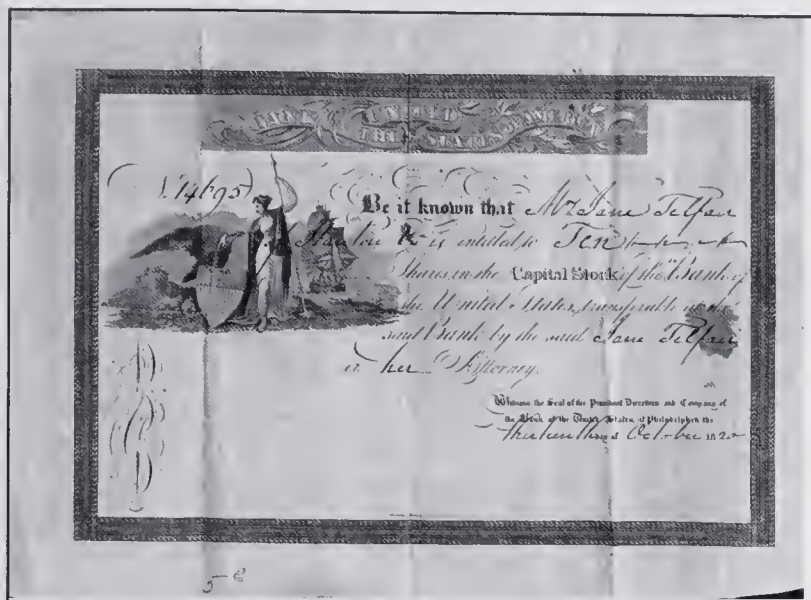 BANK UNITED
THE STATES OF AMERICA
14695
Be it known that Jane Telfair
is entitled to Ten
Shares in the Capital Stock of the Bank of
the United States, transferable at the
said Bank by the said Jane Telfair
or her Attorney.
Witness the Seal of the President Directors and Company of
the Bank of the United States, at Philadelphia the
thirteenth day of October 1820
5